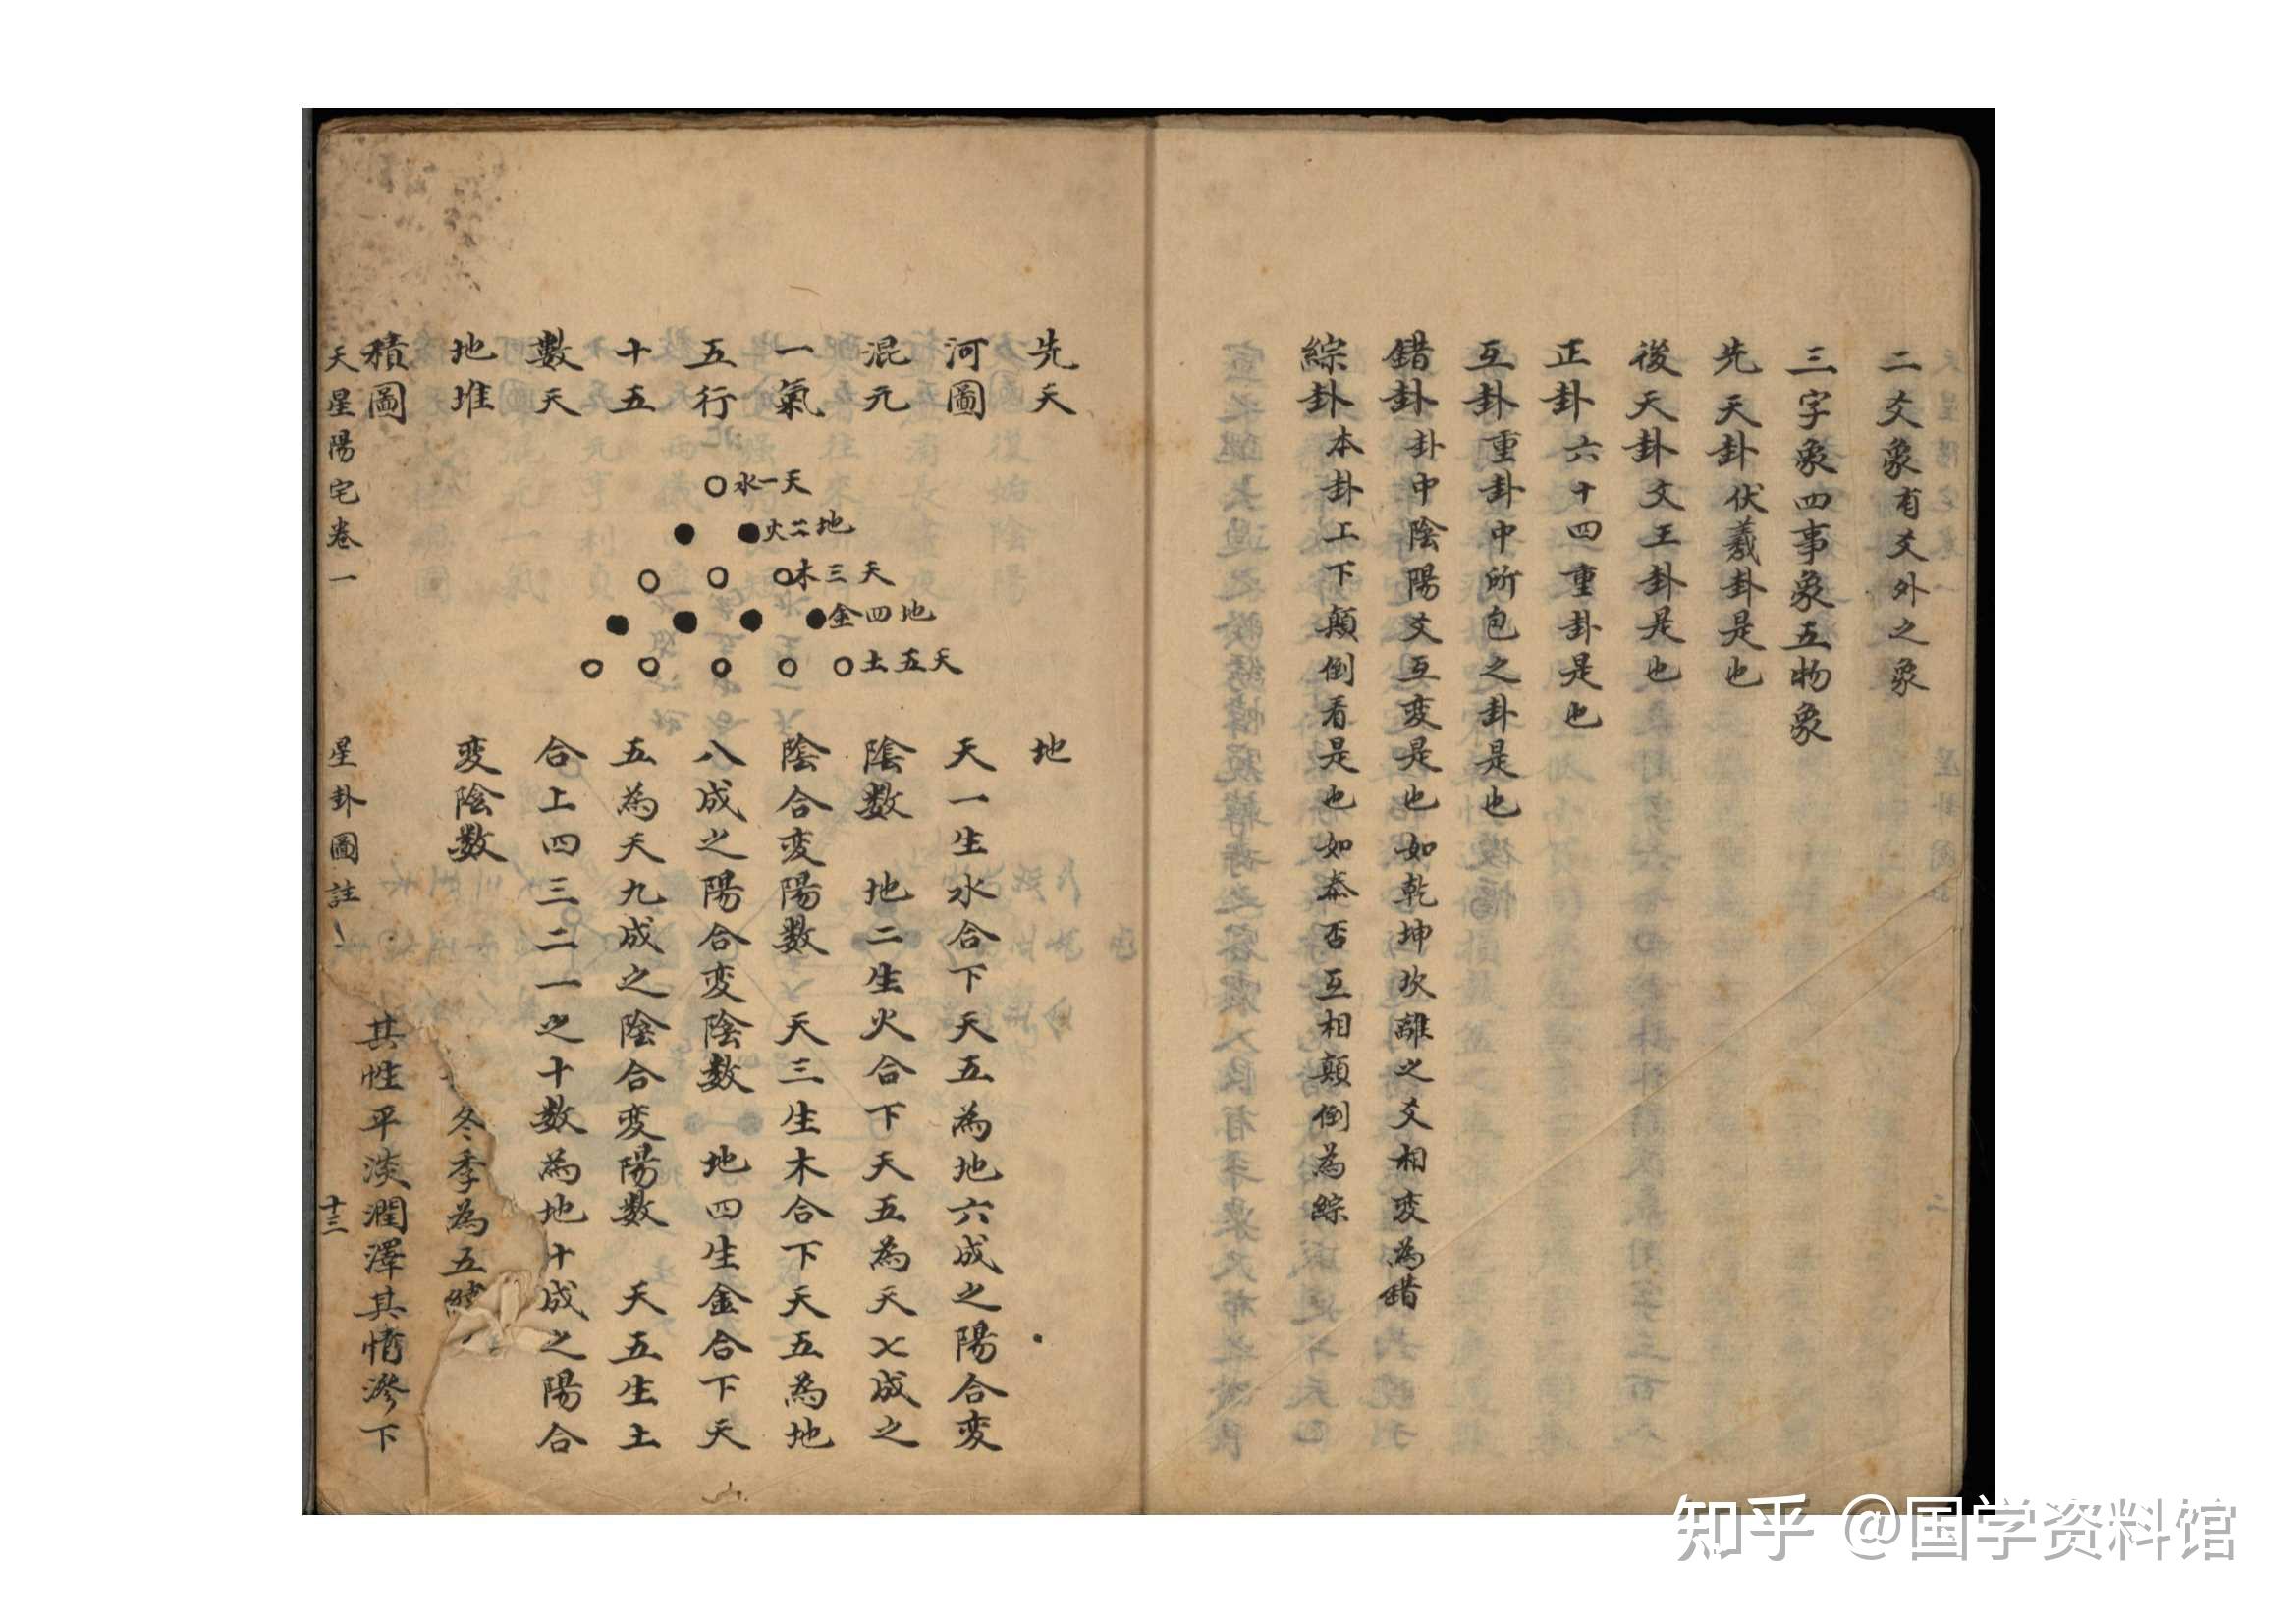 二爻象有爻外之象
三字象四事象五物象
先天卦伏羲卦是也
後天卦文王卦是也
正卦六十四重卦是也
互卦重卦中所包之卦是也
錯卦卦中陰陽爻互変是也如乾坤坎離之爻相変為錯
綜卦本卦上下顛倒看是也如泰否互相顛倒為綜
先天
河圖
混元
一氣
五行
十五
數天
地堆
積圖
天一水
地二火
天三木
地四金
天五土
地
天一生水合下天五為地六成之陽合変
陰数 地二生火合下天五為天七成之
陰合変陽数 天三生木合下天五為地
八成之陽合変陰数 地四生金合下天
五為天九成之陰合変陽数 天五生土
合上四三二一之十数為地十成之陽合
変陰数 冬季為五
其性平淡潤澤其情滲下
天星陽宅卷一 星卦圖註 十三
知乎 @国学资料馆